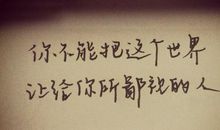 你不能把这个世界
让给你所鄙视的人